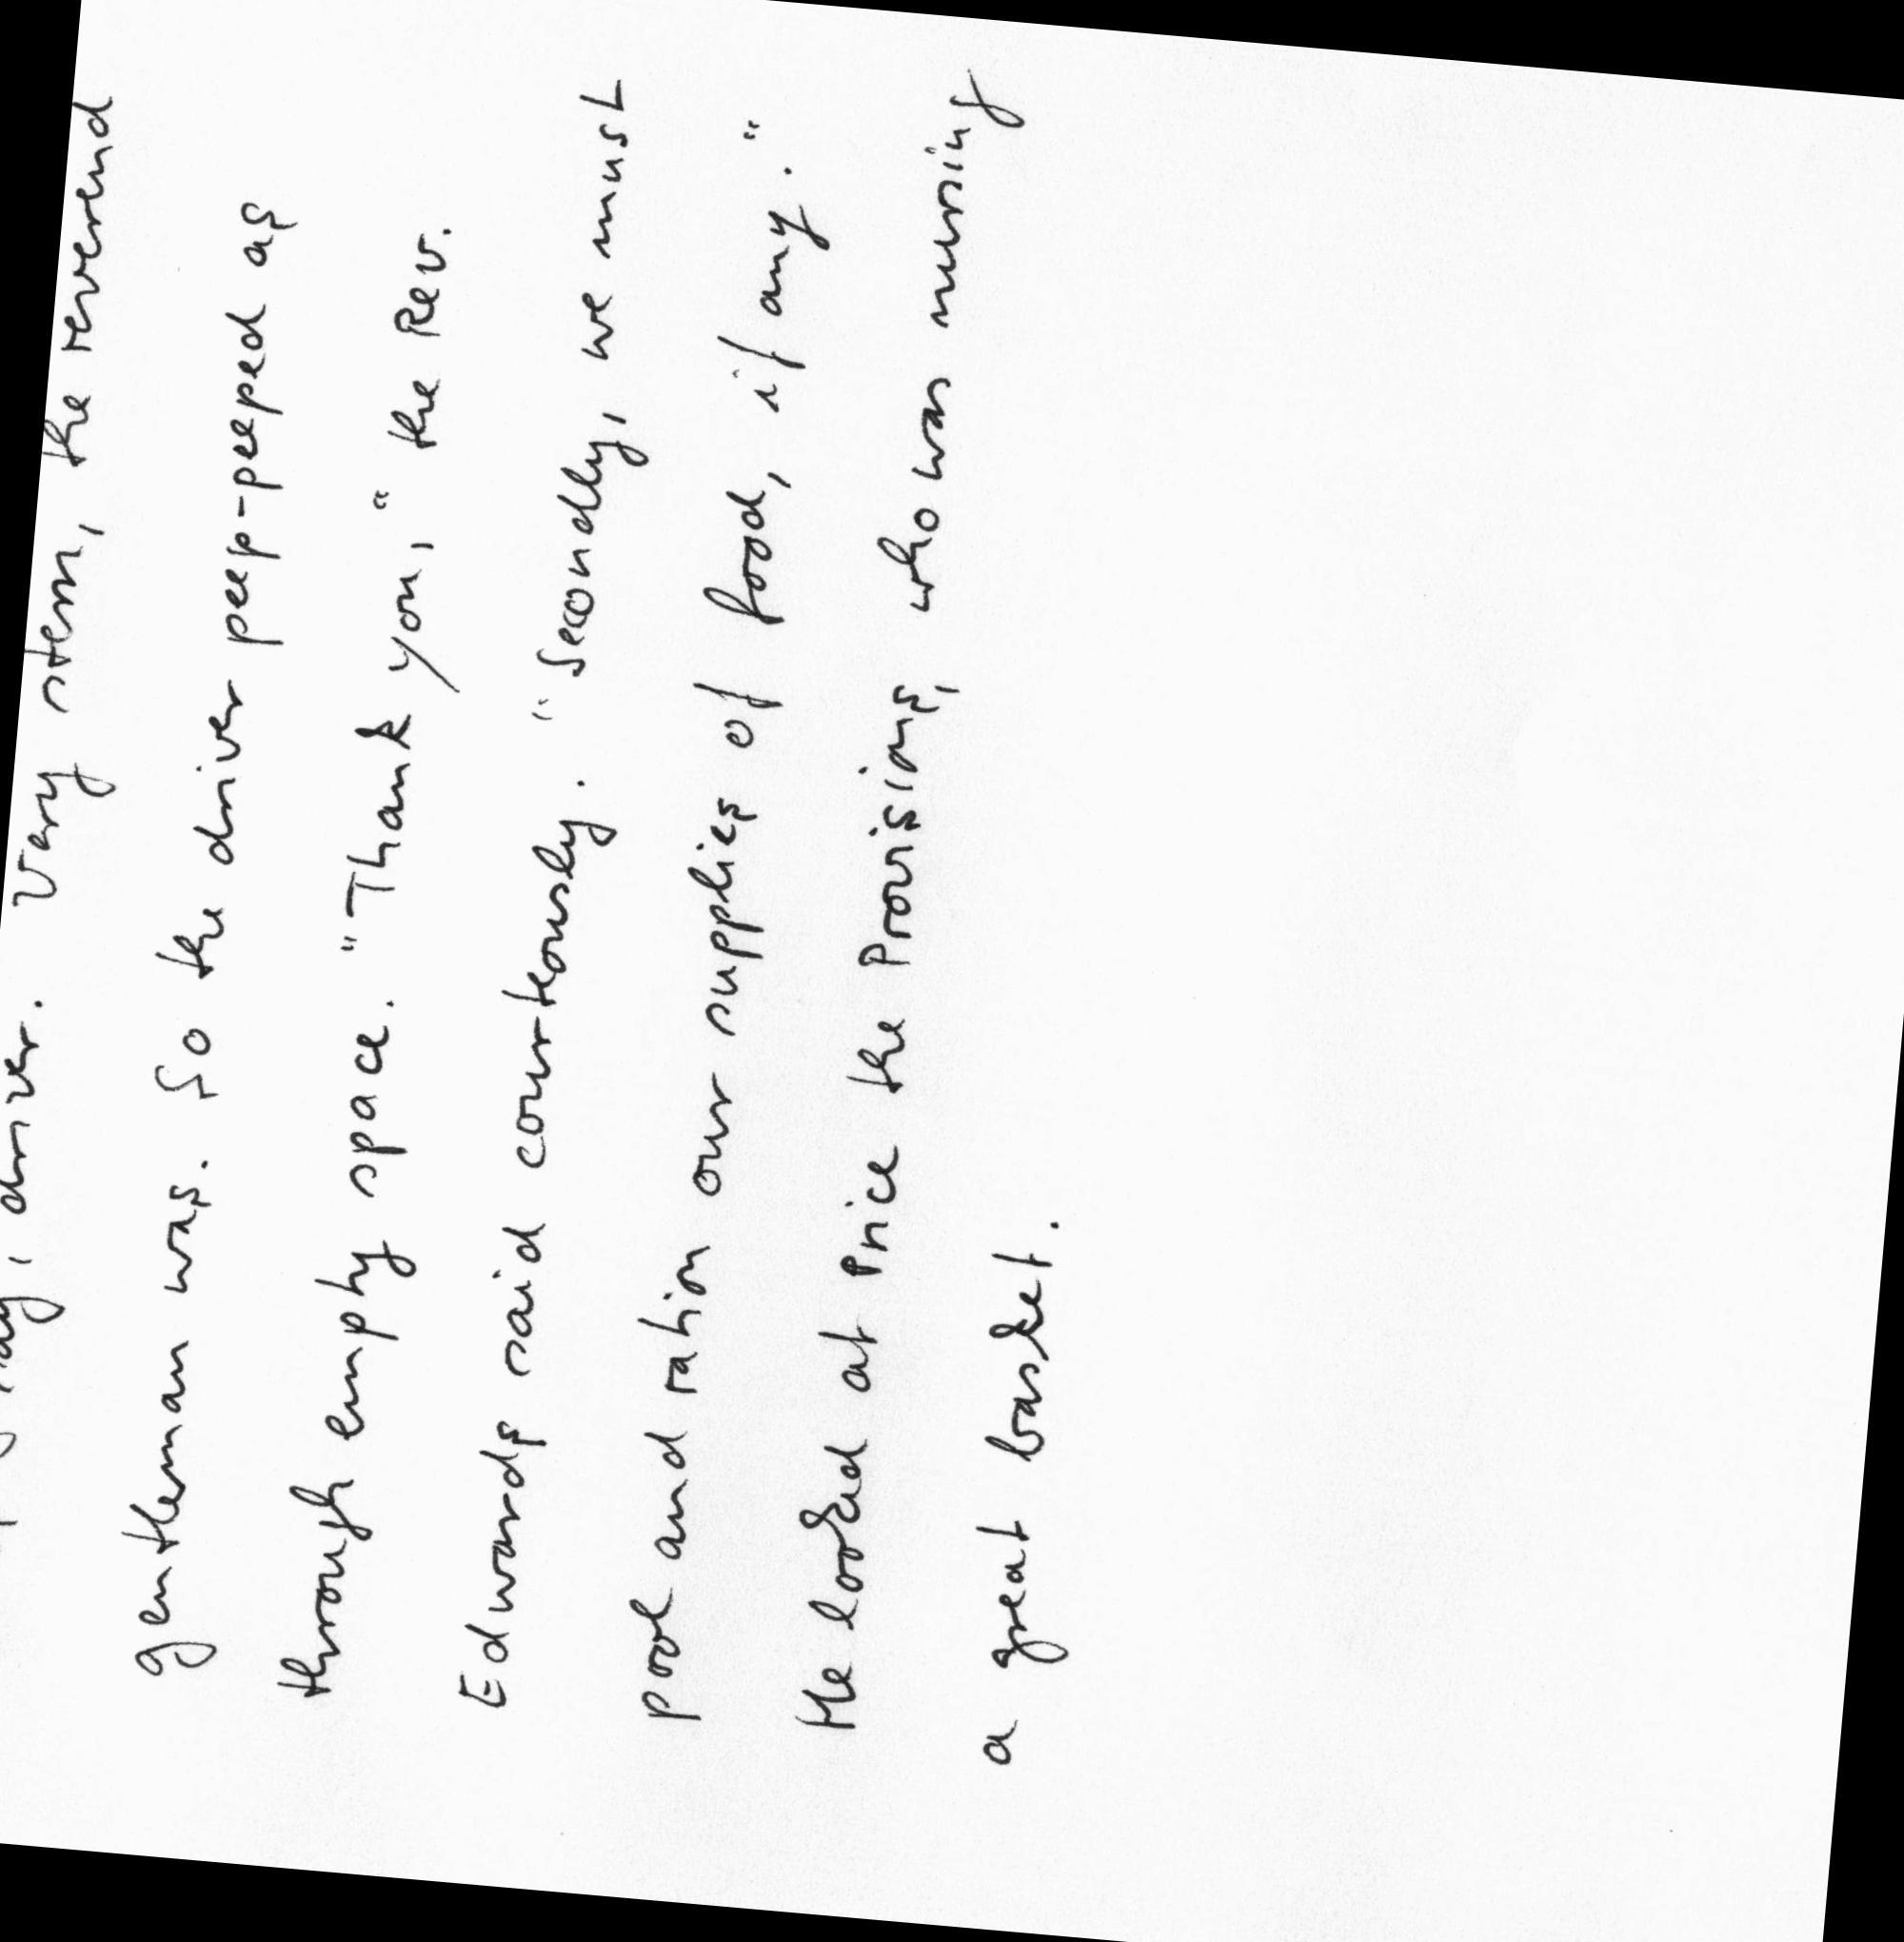 driver. Very stern, the reverend
gentleman was. So the driver peep-peeped as
through empty space. "Thank you," the Rev.
Edwards said courteously. "Secondly, we must
pool and ration our supplies of food, if any."
He looked at Price the Provisions, who was nursing
a great basket.